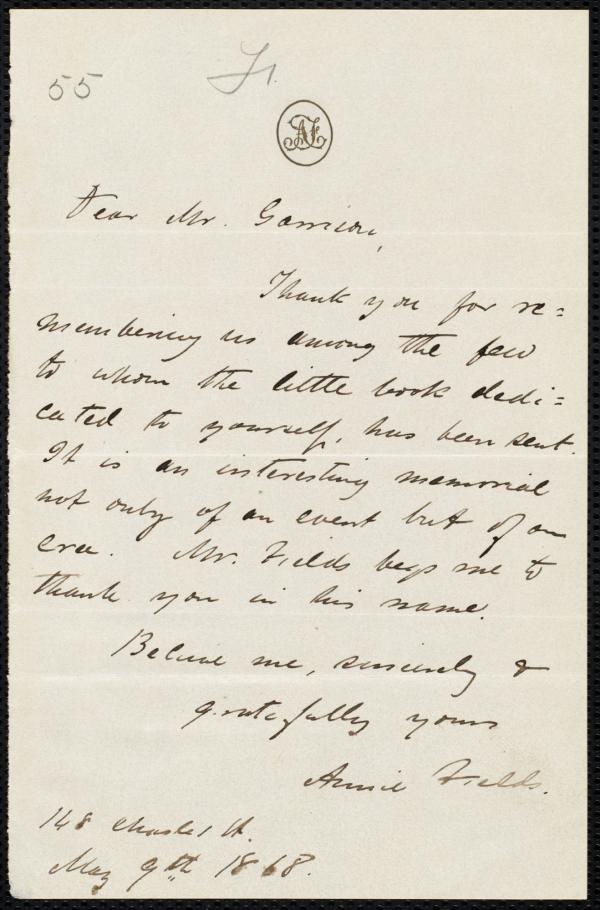 55
AF
Dear Mr. Garrison,
Thank you for re=
membering us among the few
to whom the little book dedi=
cated to yourself, has been sent.
It is an interesting memorial
not only of an event but of an
era. Mr. Fields begs me to
thank you in his name.
Believe me, sincerely &
gratefully yours
Annie Fields.
148 Charles St.
May 9th 1868.